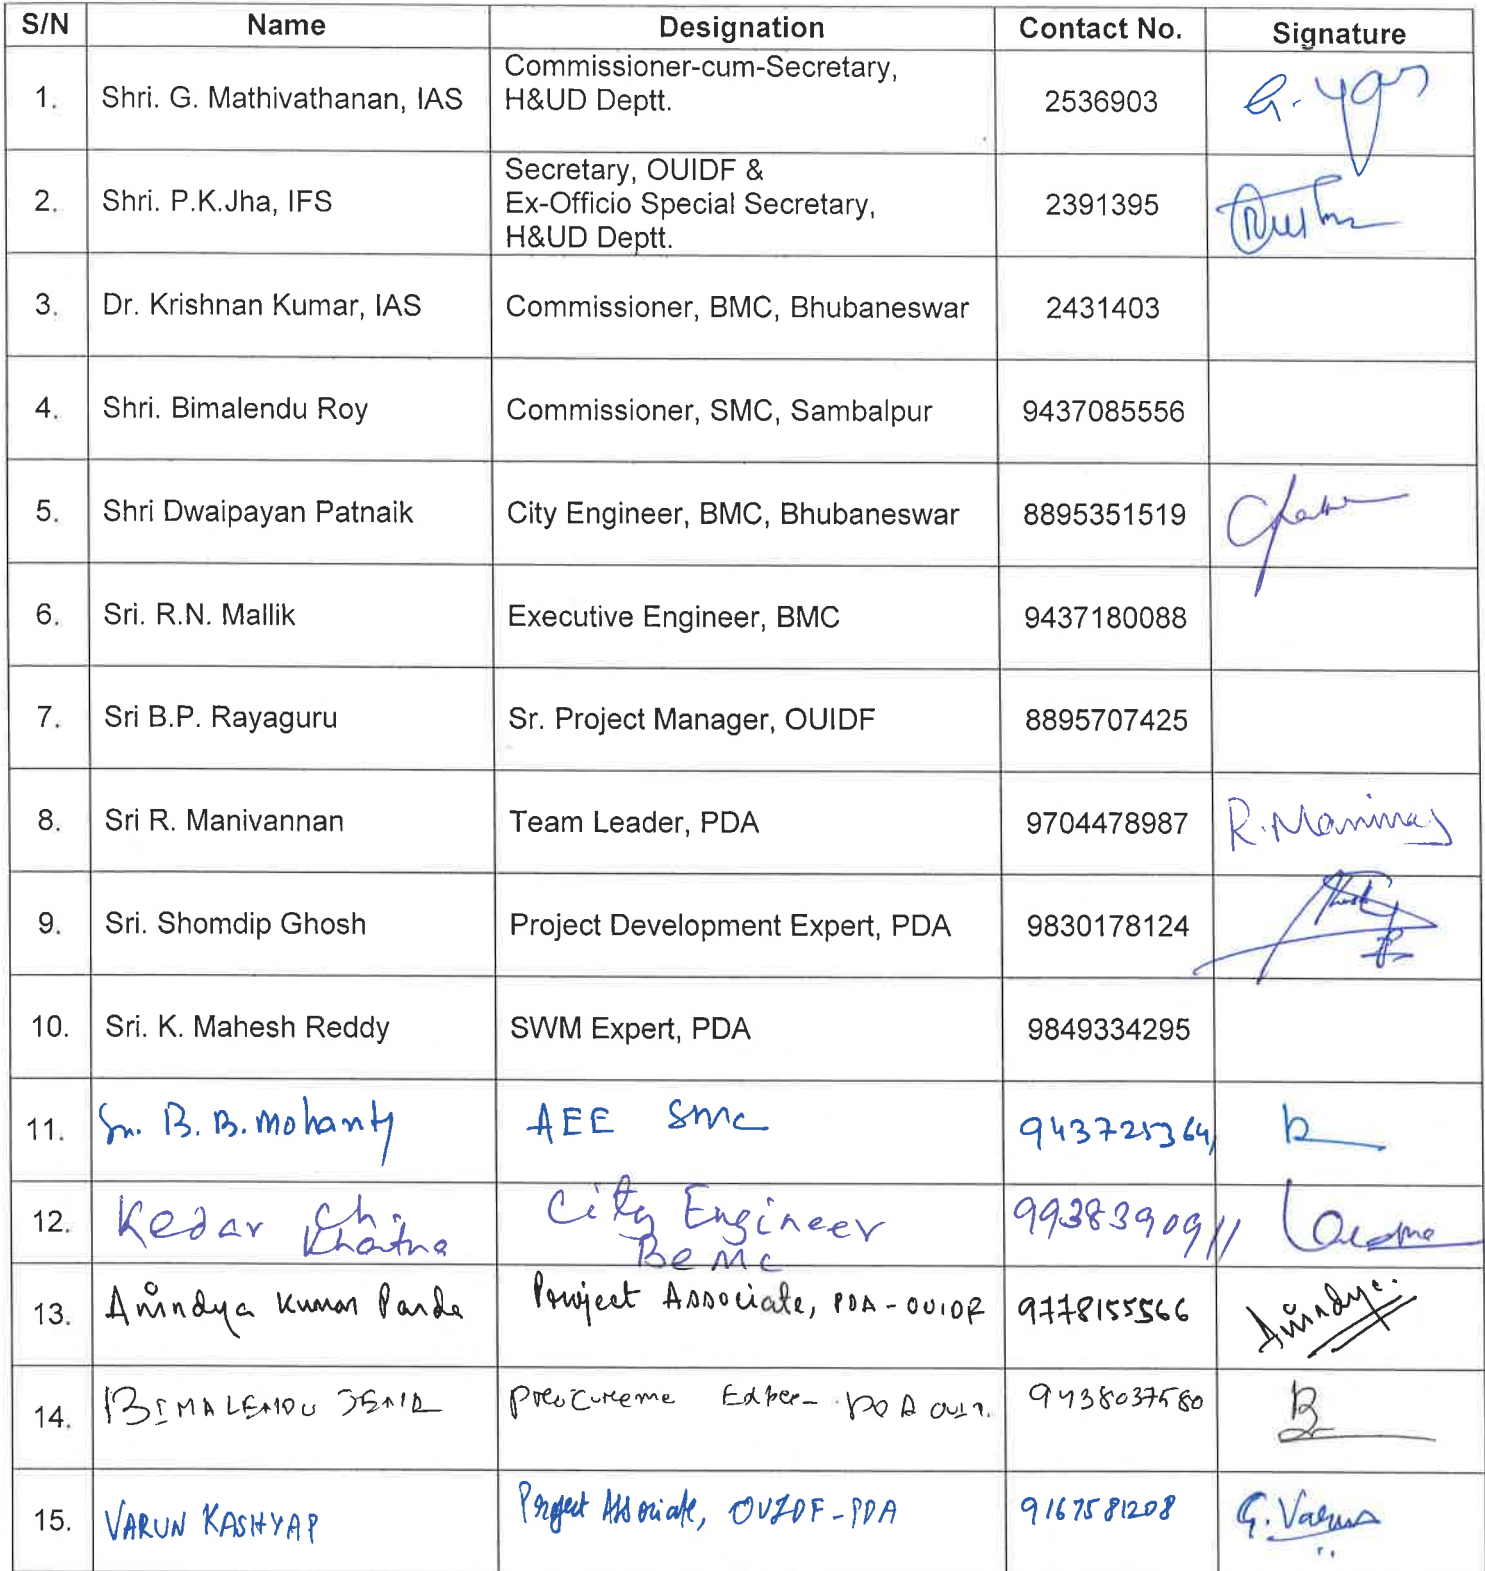 S/N Name Designation Contact No. Signature
1. Shri. G. Mathivathanan, IAS Commissioner-cum-Secretary,
H&UD Deptt. 2536903
2. Shri. P.K.Jha, IFS Secretary, OUIDF &
Ex-Officio Special Secretary,
H&UD Deptt. 2391395
3. Dr. Krishnan Kumar, IAS Commissioner, BMC, Bhubaneswar 2431403
4. Shri. Bimalendu Roy Commissioner, SMC, Sambalpur 9437085556
5. Shri Dwaipayan Patnaik City Engineer, BMC, Bhubaneswar 8895351519
6. Sri. R.N. Mallik Executive Engineer, BMC 9437180088
7. Sri B.P. Rayaguru Sr. Project Manager, OUIDF 8895707425
8. Sri R. Manivannan Team Leader, PDA 9704478987
9. Sri. Shomdip Ghosh Project Development Expert, PDA 9830178124
10. Sri. K. Mahesh Reddy SWM Expert, PDA 9849334295
11. Sri. B. B. Mohanty AEE SMC
12. Kedar Ch. City Engineer
BeMC 9938390911
13. Anindya Kumar Panda Project Associate, PDA - OUIDF 9778155566 Anindya.
14. BIMALENDU JENA 9438037580
15. VARUN KASHYAP Project Associate, OUIDF-PDA 9167581208 G. Varun